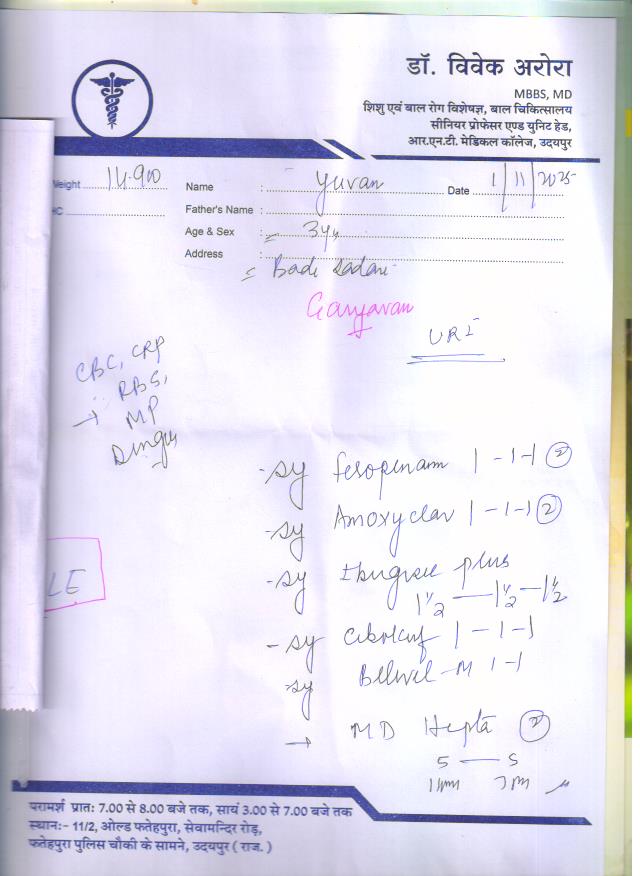 डॉ. विवेक अरोरा
MBBS, MD
शिशु एवं बाल रोग विशेषज्ञ, बाल चिकित्सालय
सीनियर प्रोफेसर एण्ड युनिट हेड,
आर.एन.टी. मेडिकल कॉलेज, उदयपुर
Weight 14.900 Name : Yuvan Date 1/11/2025
Father's Name :
Age & Sex : 3y
Address :
Badi Sadari
URI
CBC, CRP
RBS,
→ MP
- sy 1-1-1 (2)
- sy Amoxyclav 1-1-1 (2)
- sy plus
1½ — 1½ — 1½
- sy 1-1-1
- sy 1-1
→ MD (2)
5 — 5
LE
परामर्श प्रातः 7.00 से 8.00 बजे तक, सायं 3.00 से 7.00 बजे तक
स्थान:- 11/2, ओल्ड फतेहपुरा, सेवामन्दिर रोड़,
फतेहपुरा पुलिस चौकी के सामने, उदयपुर ( राज. )